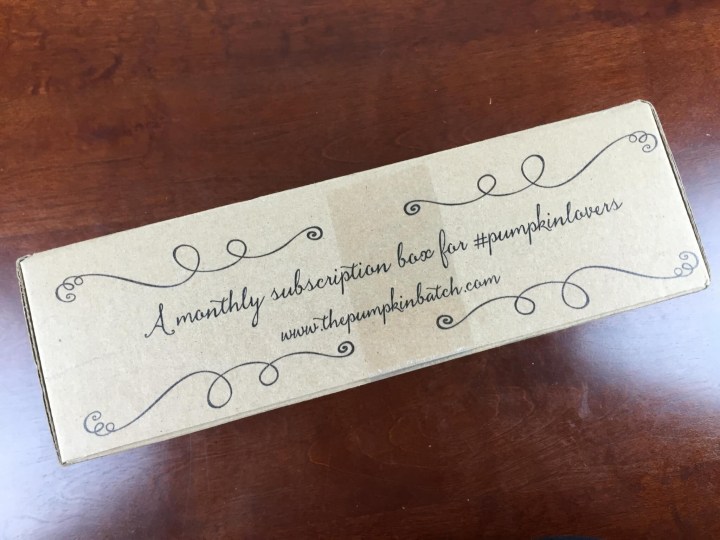 A monthly subscription box for #pumpkinlovers
www.thepumpkinbatch.com